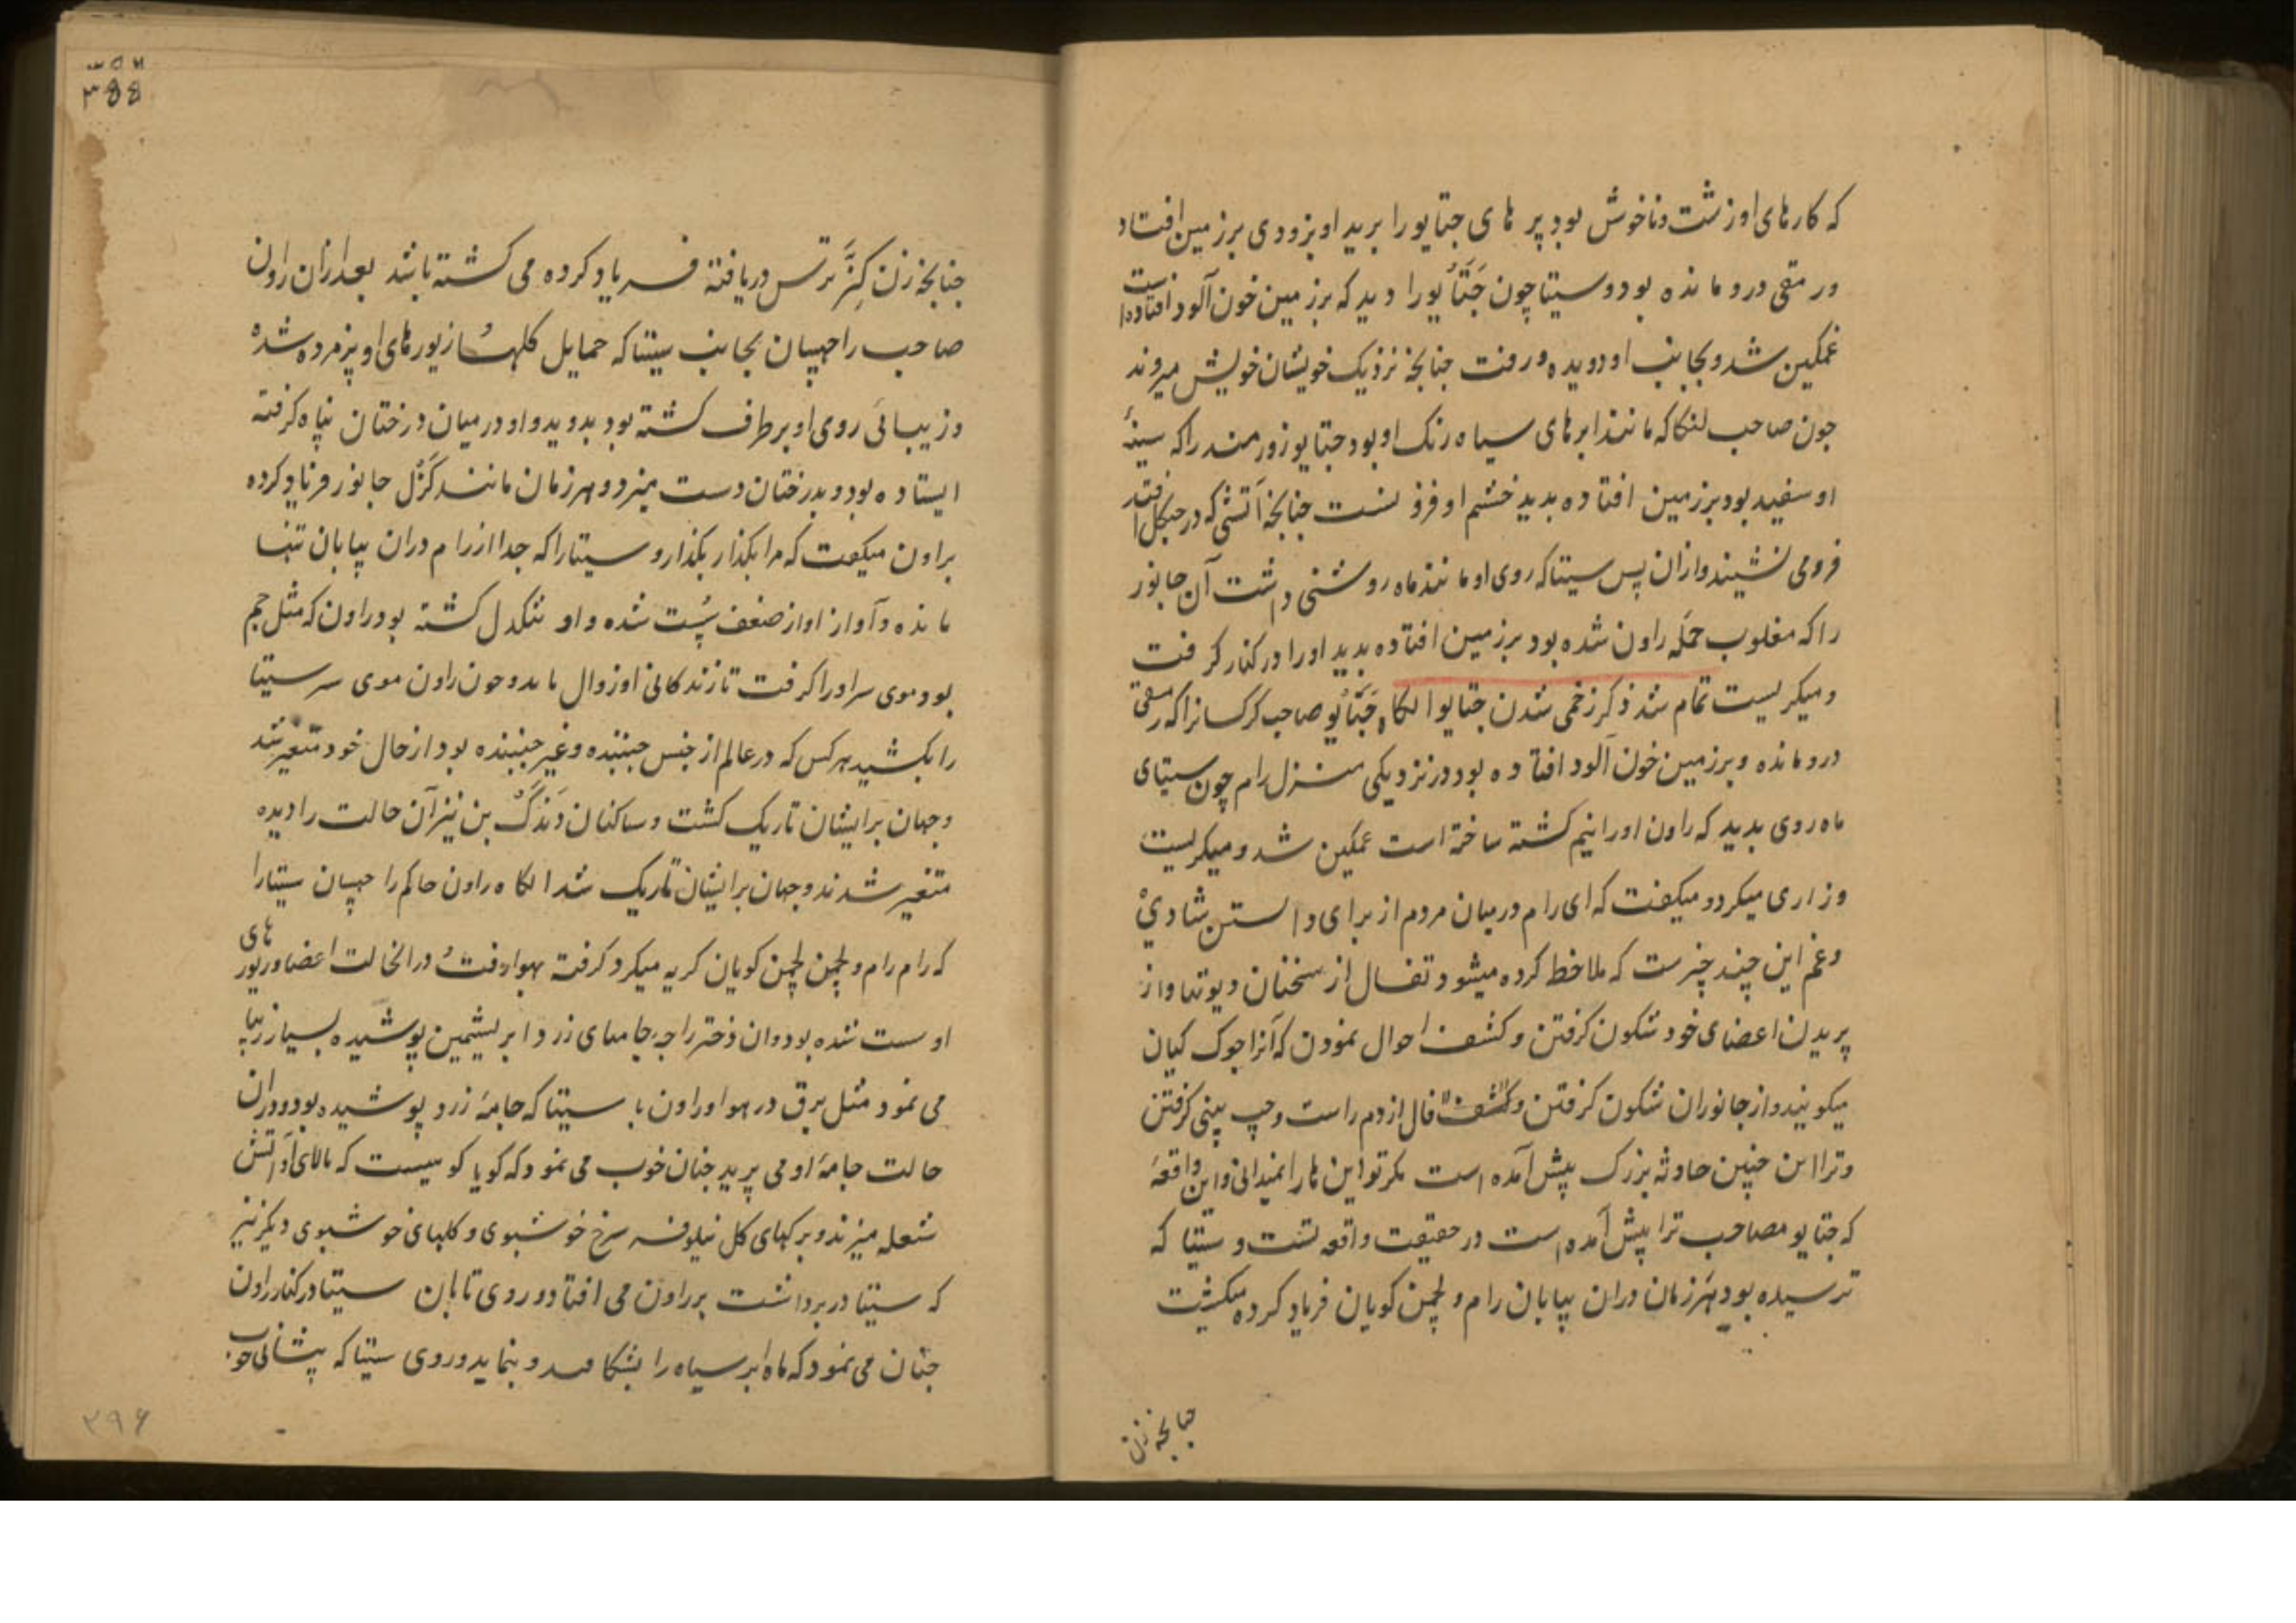 که کارهای او زشت و ناخوش بود پر های جتایو را برید او بزودی بر زمین افتاد
و رمقی درو مانده بود و سیتا چون جَتَایُو را دید که بر زمین خون آلود افتاده است
غمکین شد و بجانب او دویده و رفت چنانچه نزدیک خویشان خویش میروند
چون صاحب لنکا که مانند ابرهای سیاه رنک او بود جتایو زورمند را که سینهٔ
او سفید بود بر زمین افتاده بدید خشم او فرو نشست چنانچه آتشی که در جنکل افتد
فرو می نشیند و ازان پس سیتا که روی او مانند ماه روشنی داشت آن جانور
را که مغلوب حمله راون شده بود بر زمین افتاده بدید او را در کنار کرفت
و میکریست تمام شد ذکر زخمی شدن جتایو انکاه جَتَایُو صاحب کرکسانرا که رمقی
درو مانده و بر زمین خون آلود افتاده بود در نزدیکی منزل رام چون سیتای
ماه روی بدید که راون او را نیم کشته ساخته است غمکین شد و میکریست
و زاری میکرد و میکفت که ای رام درمیان مردم از برای دانستن شادی
و غم این چند چیزست که ملاحظه کرده میشود تفال از سخنان دیوتها و از
پریدن اعضای خود شکون کرفتن و کشف احوال نمودن که آنرا جوک کیان
میکویند و از جانوران شکون کرفتن و فال از دم راست و چپ بینی کرفتن
و ترا این چنین حادثه بزرک پیش آمده است مکر تو این ها را نمیدانی و این واقعهٔ
که جتایو مصاحب ترا پیش آمده است در حقیقت واقعه تست و سیتا که
ترسیده بود هر زمان دران بیابان رام و لچمن کویان فریاد کرده میکشت
چنانچه زن
۳۹۶
چنانچه زن کِنَّر ترس دریافته فریاد کرده می کشته باشد بعد ازان راون
صاحب راچهسان بجانب سیتا که حمایل کلها زیورهای او پژمرده شده
و زیبائی روی او برطرف کشته بود بدوید و او درمیان درختان پناه کرفته
ایستاده بود و بدرختان دست میزد و هر زمان مانند کُرُل جانور فریاد کرده
براون میکفت که مرا بکذار بکذار و سیتا را که جدا از رام دران بیابان تنها
مانده و آواز او از ضعف پست شده و او تنکدل کشته بود راون که مثل جم
بود موی سر او را کرفت تا زندکانی او زوال یابد و چون راون موی سر سیتا
را بکشید هر کس که در عالم از جنس جنبنده و غیر جنبنده بود از حال خود متغیر شد
و جهان بر ایشان تاریک کشت و ساکنان دَنْدَکْ بن نیز آن حالت را دیده
متغیر شدند و جهان بر ایشان تاریک شد انکاه راون حاکم راچهسان سیتا را
که رام رام و لچمن لچمن کویان کریه میکرد کرفته بهوا رفت و درانحالت اعضا و زیور های
او سست شده بود و ان دختر راجه جامهای زرد ابریشمین پوشیده بسیار زیبا
می نمود مثل برق در هوا و راون با سیتا که جامهٔ زرد پوشیده بود و دران
حالت جامهٔ او می پرید چنان خوب می نمود که کویا کوهیست که بالای او آتش
شعله میزند و برکهای کل نیلوفر سرخ خوشبوی و کلهای خوشبوی دیکر نیز
که سیتا در بر داشت بر راون می افتاد و روی تابان سیتا در کنار راون
چنان می نمود که ماه ابر سیاه را بشکافد و بنماید و روی سیتا که پیشانی خوب
۳۹۶